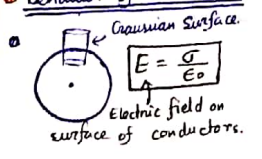 Gaussian Surface.
E = σ/ε0
Electric field on
surface of conductors.